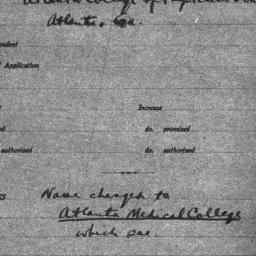 Atlanta College of Physicians
Atlanta, Ga.
ndent
Application
Increase
ed do. promised
authorized do. authorized
Name changed to
Atlanta Medical College
which see.